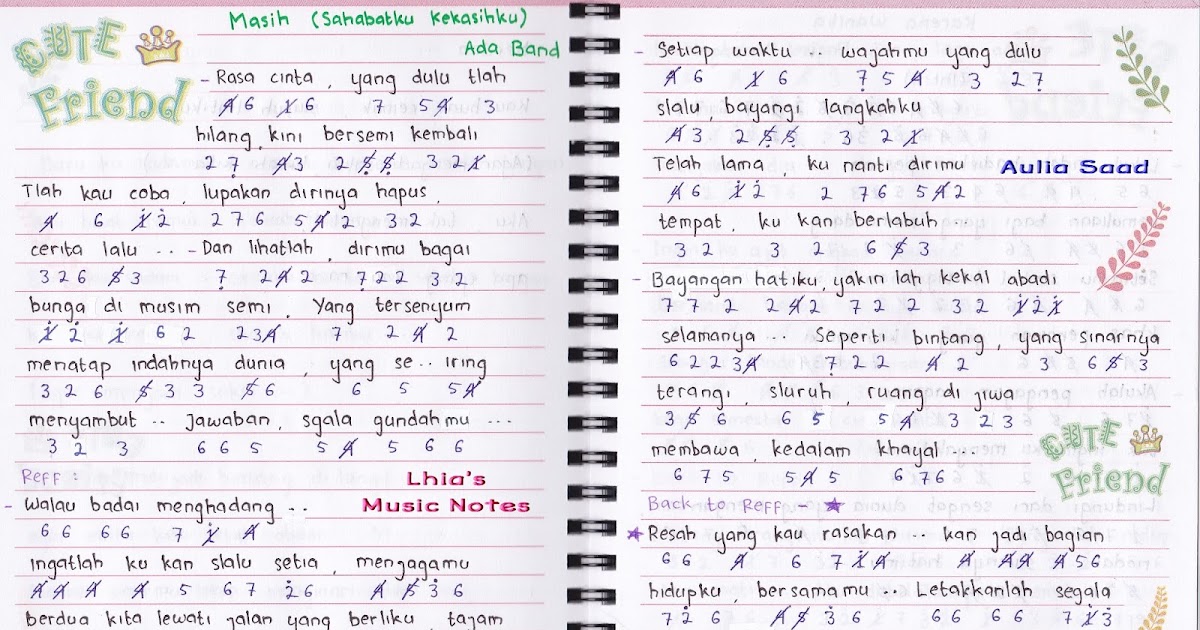 CUTE Friend
Masih (Sahabatku Kekasihku)
Ada Band
- Rasa cinta, yang dulu tlah
4̸ 6 1̸ 6 7 5 4̸ 3
hilang, kini bersemi kembali
2 7̣ 4̸ 3 2 5̸̣ 5̸̣ 3 2 1̸
Tlah kau coba, lupakan dirinya hapus,
4̸ 6 1̸̇ 2̇ 2 7 6 5 4̸ 2 3 2
cerita lalu ... - Dan lihatlah, dirimu bagai
3 2 6 5̸ 3 7̣ 2 4̸ 2 7̣ 2 2 3 2
bunga di musim semi, Yang tersenyum
1̸̇ 2̇ 1̸̇ 6 2 2 3 4̸ 7̣ 2 4̸ 2
menatap indahnya dunia, yang se.. iring
3 2 6 5̸ 3 3 5̸ 6 6 5 5 4̸
menyambut .. jawaban, sgala gundahmu ...
3 2 3 6 6 5 5 4̸ 5 6 6
Reff :
Lhia's
Music Notes
- Walau badai menghadang ...
6 6 6 6 7 1̸̇ 4̸
Ingatlah ku kan slalu setia, menjagamu
4̸ 4̸ 4̸ 4̸ 5 6 7 2̇ 6 4̸ 5̸ 3 6
berdua kita lewati jalan yang berliku, tajam
- Setiap waktu .. wajahmu yang dulu
4̸ 6 1̸ 6 7 5 4̸ 3 2 7̣
slalu, bayangi langkahku
4̸ 3 2 5̸̣ 5̸̣ 3 2 1̸
Telah lama, ku nanti dirimu
4̸ 6 1̸̇ 2̇ 2 7 6 5 4̸ 2
Aulia Saad
tempat, ku kan berlabuh
3 2 3 2 6 5̸ 3
- Bayangan hatiku, yakin lah kekal abadi
7 7 2 2 4̸ 2 7 2 2 3 2 1̸̇ 2̇ 1̸̇
selamanya ... Seperti bintang, yang sinarnya
6 2 2 3 4̸ 7̣ 2 2 4̸ 2 3 6 5̸ 3
terang, sluruh, ruang di jiwa
3 5̸ 6 6 5 5 4̸ 3 2 3
membawa, kedalam khayal ...
6 7 5 5 4̸ 5 6 7 6
CUTE Friend
Back to Reff - ★
★ Resah yang kau rasakan .. kan jadi bagian
6 6 4̸ 6 7 1̸̇ 4̸ 4̸ 4̸ 4̸ 4̸ 5 6
hidupku, bersamamu .. Letakkanlah segala
7 2̇ 6 4̸ 5̸ 3 6 6 6 6 6 7 1̸̇ 3̇